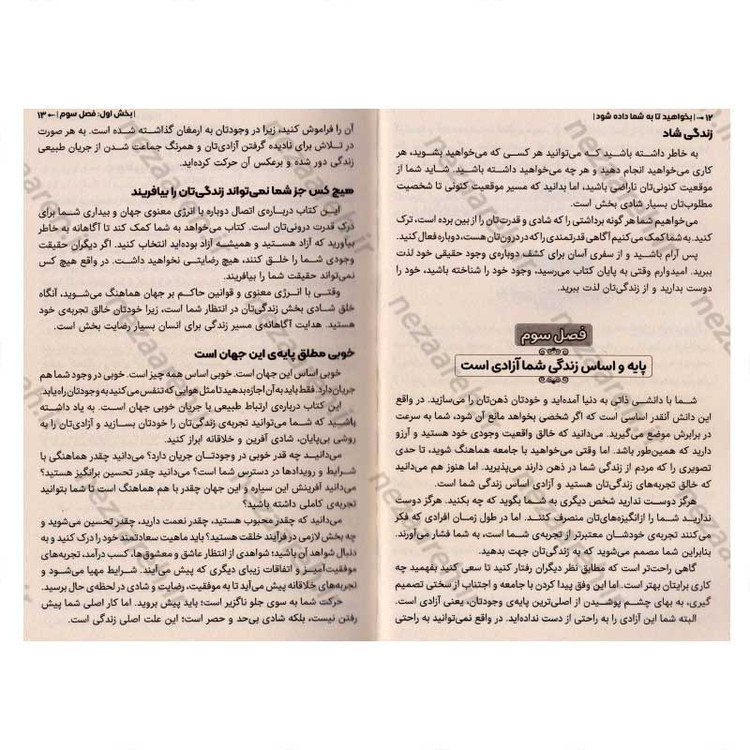 ۱۲ → | بخواهید تا به شما داده شود |
زندگی شاد
به خاطر داشته باشید که می‌توانید هر کسی که می‌خواهید بشوید، هر
کاری می‌خواهید انجام دهید و هر چه می‌خواهید داشته باشید. شاید شما از
موقعیت کنونی‌تان ناراضی باشید، اما بدانید که مسیر موقعیت کنونی تا شخصیت
مطلوب‌تان بسیار شادی بخش است.
می‌خواهیم شما هر گونه برداشتی را که شادی و قدرت‌تان را از بین برده است، ترک
کنید. به شما کمک می‌کنیم آگاهی قدرتمندی را که در درون‌تان هست، دوباره فعال کنید.
پس آرام باشید و از سفری آسان برای کشف دوباره‌ی وجود حقیقی خود لذت
ببرید. امیدوارم وقتی به پایان کتاب می‌رسید، وجود خود را شناخته باشید، خود را
دوست بدارید و از زندگی‌تان لذت ببرید.
فصل سوم
پایه و اساس زندگی شما آزادی است
شما با دانشی ذاتی به دنیا آمده‌اید و خودتان ذهن‌تان را می‌سازید. در واقع
این دانش آنقدر اساسی است که اگر شخصی بخواهد مانع آن شود، شما به سرعت
در برابرش موضع می‌گیرید. می‌دانید که خالق واقعیت وجودی خود هستید و آرزو
دارید که همین‌طور باشد. اما وقتی می‌خواهید با جامعه هماهنگ شوید، تا حدی
تصویری را که مردم از زندگی شما در ذهن دارند می‌پذیرید. اما هنوز هم می‌دانید
که خالق تجربه‌های زندگی‌تان هستید و آزادی اساس زندگی شما است.
هرگز دوست ندارید شخص دیگری به شما بگوید که چه بکنید. هرگز دوست
ندارید شما را از انگیزه‌های‌تان منصرف کنند. اما در طول زمان افرادی که فکر
می‌کنند تجربه‌ی خودشان معتبرتر از تجربه‌ی شما است، به شما فشار می‌آورند.
بنابراین شما مصمم می‌شوید که به زندگی‌تان جهت بدهید.
گاهی راحت‌تر است که مطابق نظر دیگران رفتار کنید تا سعی کنید بفهمید چه
کاری برایتان بهتر است. اما این وفق پیدا کردن با جامعه و اجتناب از سختی تصمیم
گیری، به بهای چشم پوشیدن از اصلی‌ترین پایه‌ی وجودتان، یعنی آزادی است.
البته شما این آزادی را به راحتی از دست نداده‌اید. در واقع نمی‌توانید به راحتی
| بخش اول: فصل سوم | ← ۱۳
آن را فراموش کنید، زیرا در وجودتان به ارمغان گذاشته شده است. به هر صورت
در تلاش برای نادیده گرفتن آزادی‌تان و همرنگ جماعت شدن از جریان طبیعی
زندگی دور شده و برعکس آن حرکت کرده‌اید.
هیچ کس جز شما نمی‌تواند زندگی‌تان را بیافریند
این کتاب درباره‌ی اتصال دوباره با انرژی معنوی جهان و بیداری شما برای
درک قدرت درونی‌تان است. کتاب می‌خواهد به شما کمک کند تا آگاهانه به خاطر
بیاورید که آزاد هستید و همیشه آزاد بوده‌اید انتخاب کنید. اگر دیگران حقیقت
وجودی شما را خلق کنند، هیچ رضایتی نخواهید داشت. در واقع هیچ کس
نمی‌تواند حقیقت شما را بیافریند.
وقتی با انرژی معنوی و قوانین حاکم بر جهان هماهنگ می‌شوید، آنگاه
خلق شادی بخش زندگی‌تان در انتظار شما است، زیرا خودتان خالق تجربه‌ی خود
هستید. هدایت آگاهانه‌ی مسیر زندگی برای انسان بسیار رضایت بخش است.
خوبی مطلق پایه‌ی این جهان است
خوبی اساس این جهان است. خوبی اساس همه چیز است. خوبی در وجود شما هم
جریان دارد. فقط باید به آن اجازه بدهید تا مثل هوایی که تنفس می‌کنید به وجودتان راه یابد.
این کتاب درباره‌ی ارتباط طبیعی با جریان خوبی جهان است. به یاد داشته
باشید که شما می‌توانید تجربه‌ی زندگی‌تان را خودتان بسازید و آزادی‌تان را به
روشی بی‌پایان، شادی آفرین و خلاقانه ابراز کنید.
می‌دانید چه قدر خوبی در وجودتان جریان دارد؟ می‌دانید چقدر هماهنگی با
شرایط و رویدادها در دسترس شما است؟ می‌دانید چقدر تحسین برانگیز هستید؟
می‌دانید آفرینش این سیاره و این جهان چقدر با هم هماهنگ است تا شما بتوانید
تجربه‌ی کاملی داشته باشید؟
می‌دانید که چقدر محبوب هستید، چقدر نعمت دارید، چقدر تحسین می‌شوید و
چه بخش لازمی در فرآیند خلقت هستید؟ باید ماهیت سعادتمند خود را درک کنید و به
دنبال شواهد آن باشید؛ شواهدی از انتظار عاشق و معشوق‌ها، کسب درآمد، تجربه‌های
موفقیت‌آمیز و اتفاقات زیبای دیگری که پیش می‌آیند. شرایط مهیا می‌شود و
تجربه‌های خلاقانه پیش می‌آید تا به موفقیت، رضایت و شادی در لحظه‌ی حال برسید.
حرکت شما به سوی جلو ناگزیر است؛ باید پیش بروید. اما کار اصلی شما پیش
رفتن نیست، بلکه شادی بی‌حد و حصر است؛ این علت اصلی زندگی است.
nezaare.ir